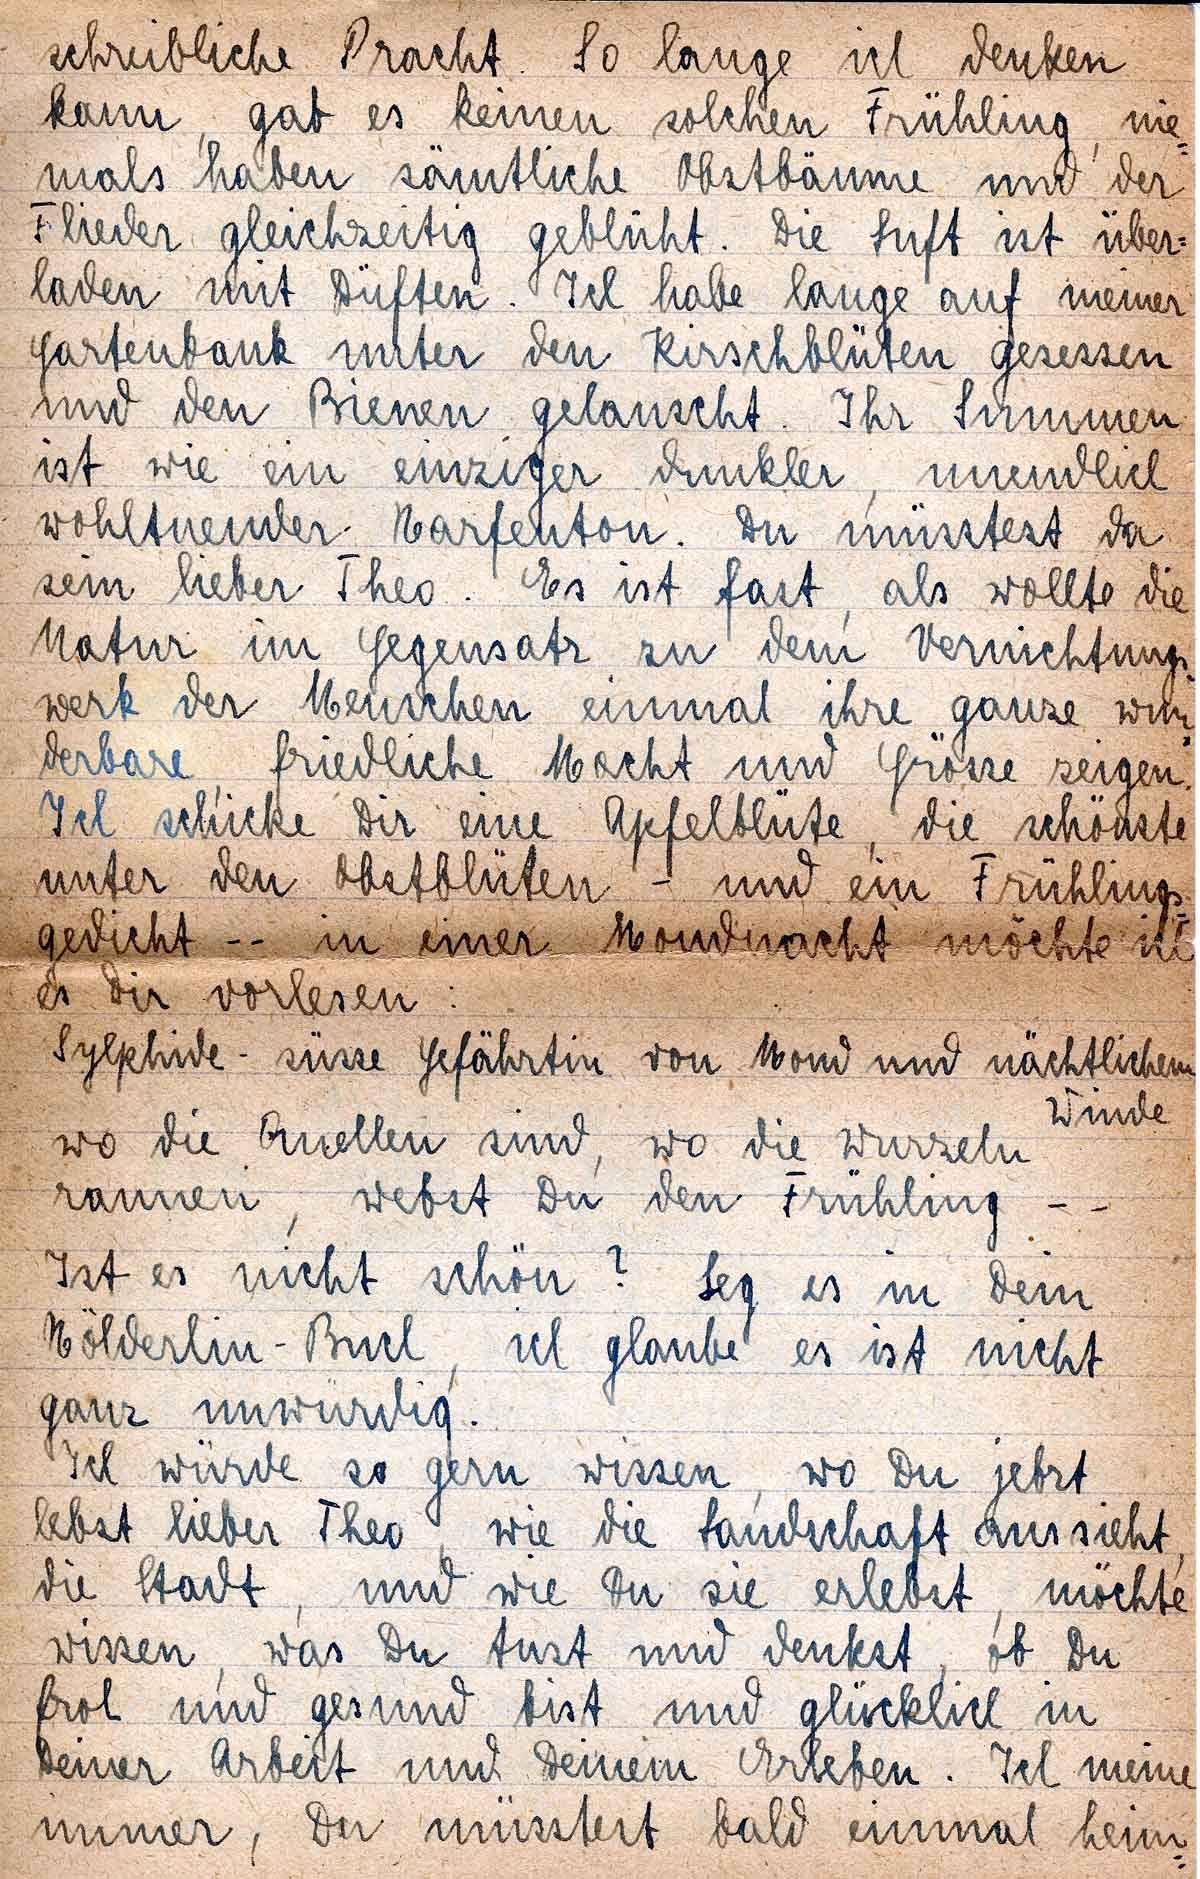 schreibliche Pracht. So lange ich denken
kann, gab es keinen solchen Frühling, nie=
mals haben sämtliche Obstbäume und der
Flieder gleichzeitig geblüht. Die Luft ist über=
laden mit Düften. Ich habe lange auf meiner
Gartenbank unter den Kirschblüten gesessen
und den Bienen gelauscht. Ihr Summen
ist wie ein einziger dunkler, unendlich
wohltuender Harfenton. Du müsstest da
sein lieber Theo. Es ist fast, als wollte die
Natur im Gegensatz zu dem Vernichtungs=
werk der Menschen einmal ihre ganze wun=
derbare, friedliche Macht und Grösse zeigen.
Ich schicke Dir eine Apfelblüte, die schönste
unter den Obstblüten - und ein Frühlings=
gedicht -- in einer Mondnacht möchte ich
es Dir vorlesen:
Sylphide - süsse Gefährtin von Mond und nächtlichem
Winde
wo die Quellen sind, wo die Wurzeln
raunen, webst Du den Frühling --
Ist es nicht schön? Leg es in Dein
Hölderlin-Buch, ich glaube es ist nicht
ganz unwürdig.
Ich würde so gern wissen, wo Du jetzt
lebst lieber Theo, wie die Landschaft aussieht,
die Stadt, und wie Du sie erlebst, möchte
wissen, was Du tust und denkst, ob Du
froh und gesund bist und glücklich in
Deiner Arbeit und Deinem Erleben. Ich meine
immer, Du müsstest bald einmal heim=